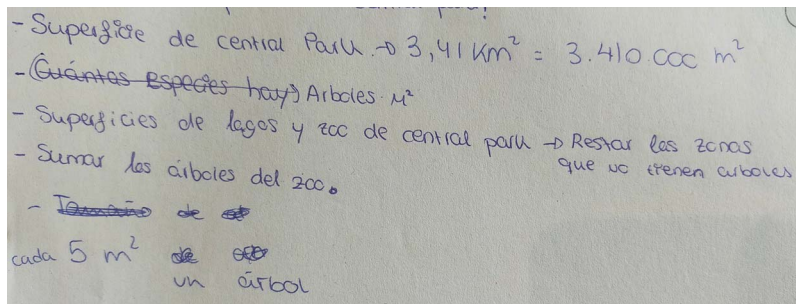 - Superficie de central Park → 3,41 Km² = 3.410.000 m²
- Cuántas especies hay) Arboles. M²
- Superficies de lagos y zoo de central park → Restar las zonas
que no tienen arboles
- Sumar los árboles del zoo.
- Tamaño de
cada 5 m² de
un árbol